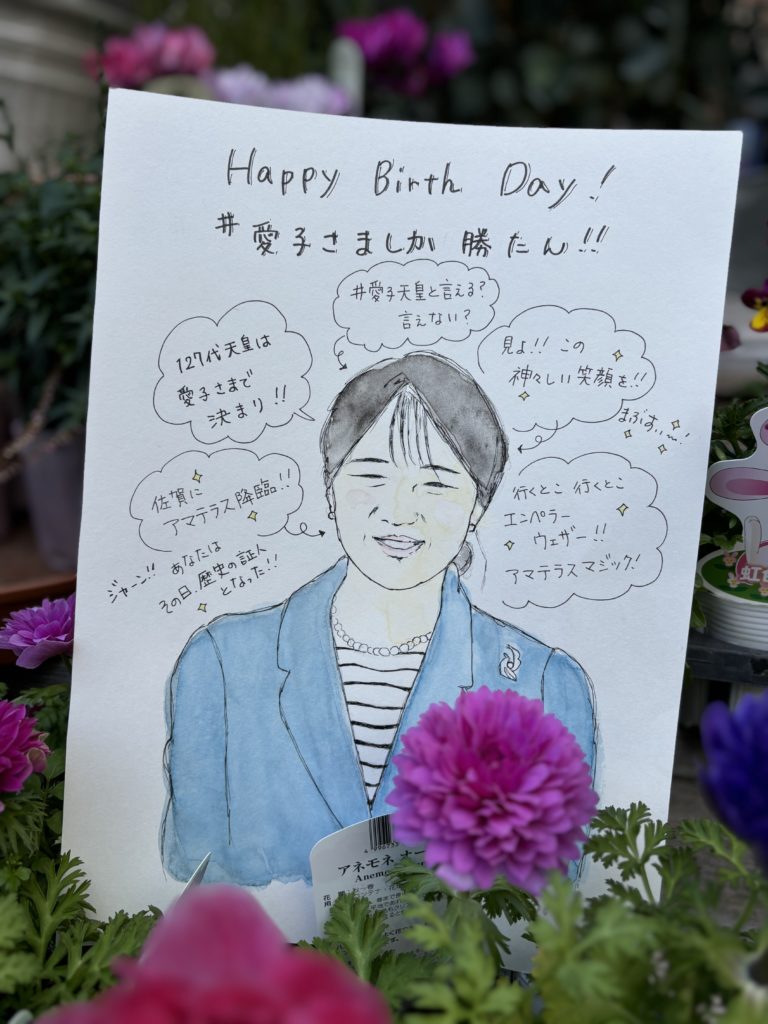 Happy Birth Day!
#愛子さましか勝たん!!
#愛子天皇と言える?
言えない?
127代天皇は
愛子さまで
決まり!!
見よ!! この
神々しい笑顔を!!
まぶすぃ〜!
佐賀に
アマテラス降臨!!
ジャーン!!
あなたは
その日、歴史の証人
となった!!
行くとこ 行くとこ
エンペラー
ウェザー!!
アマテラスマジック!
アネモネ オー
Anemo
虹色